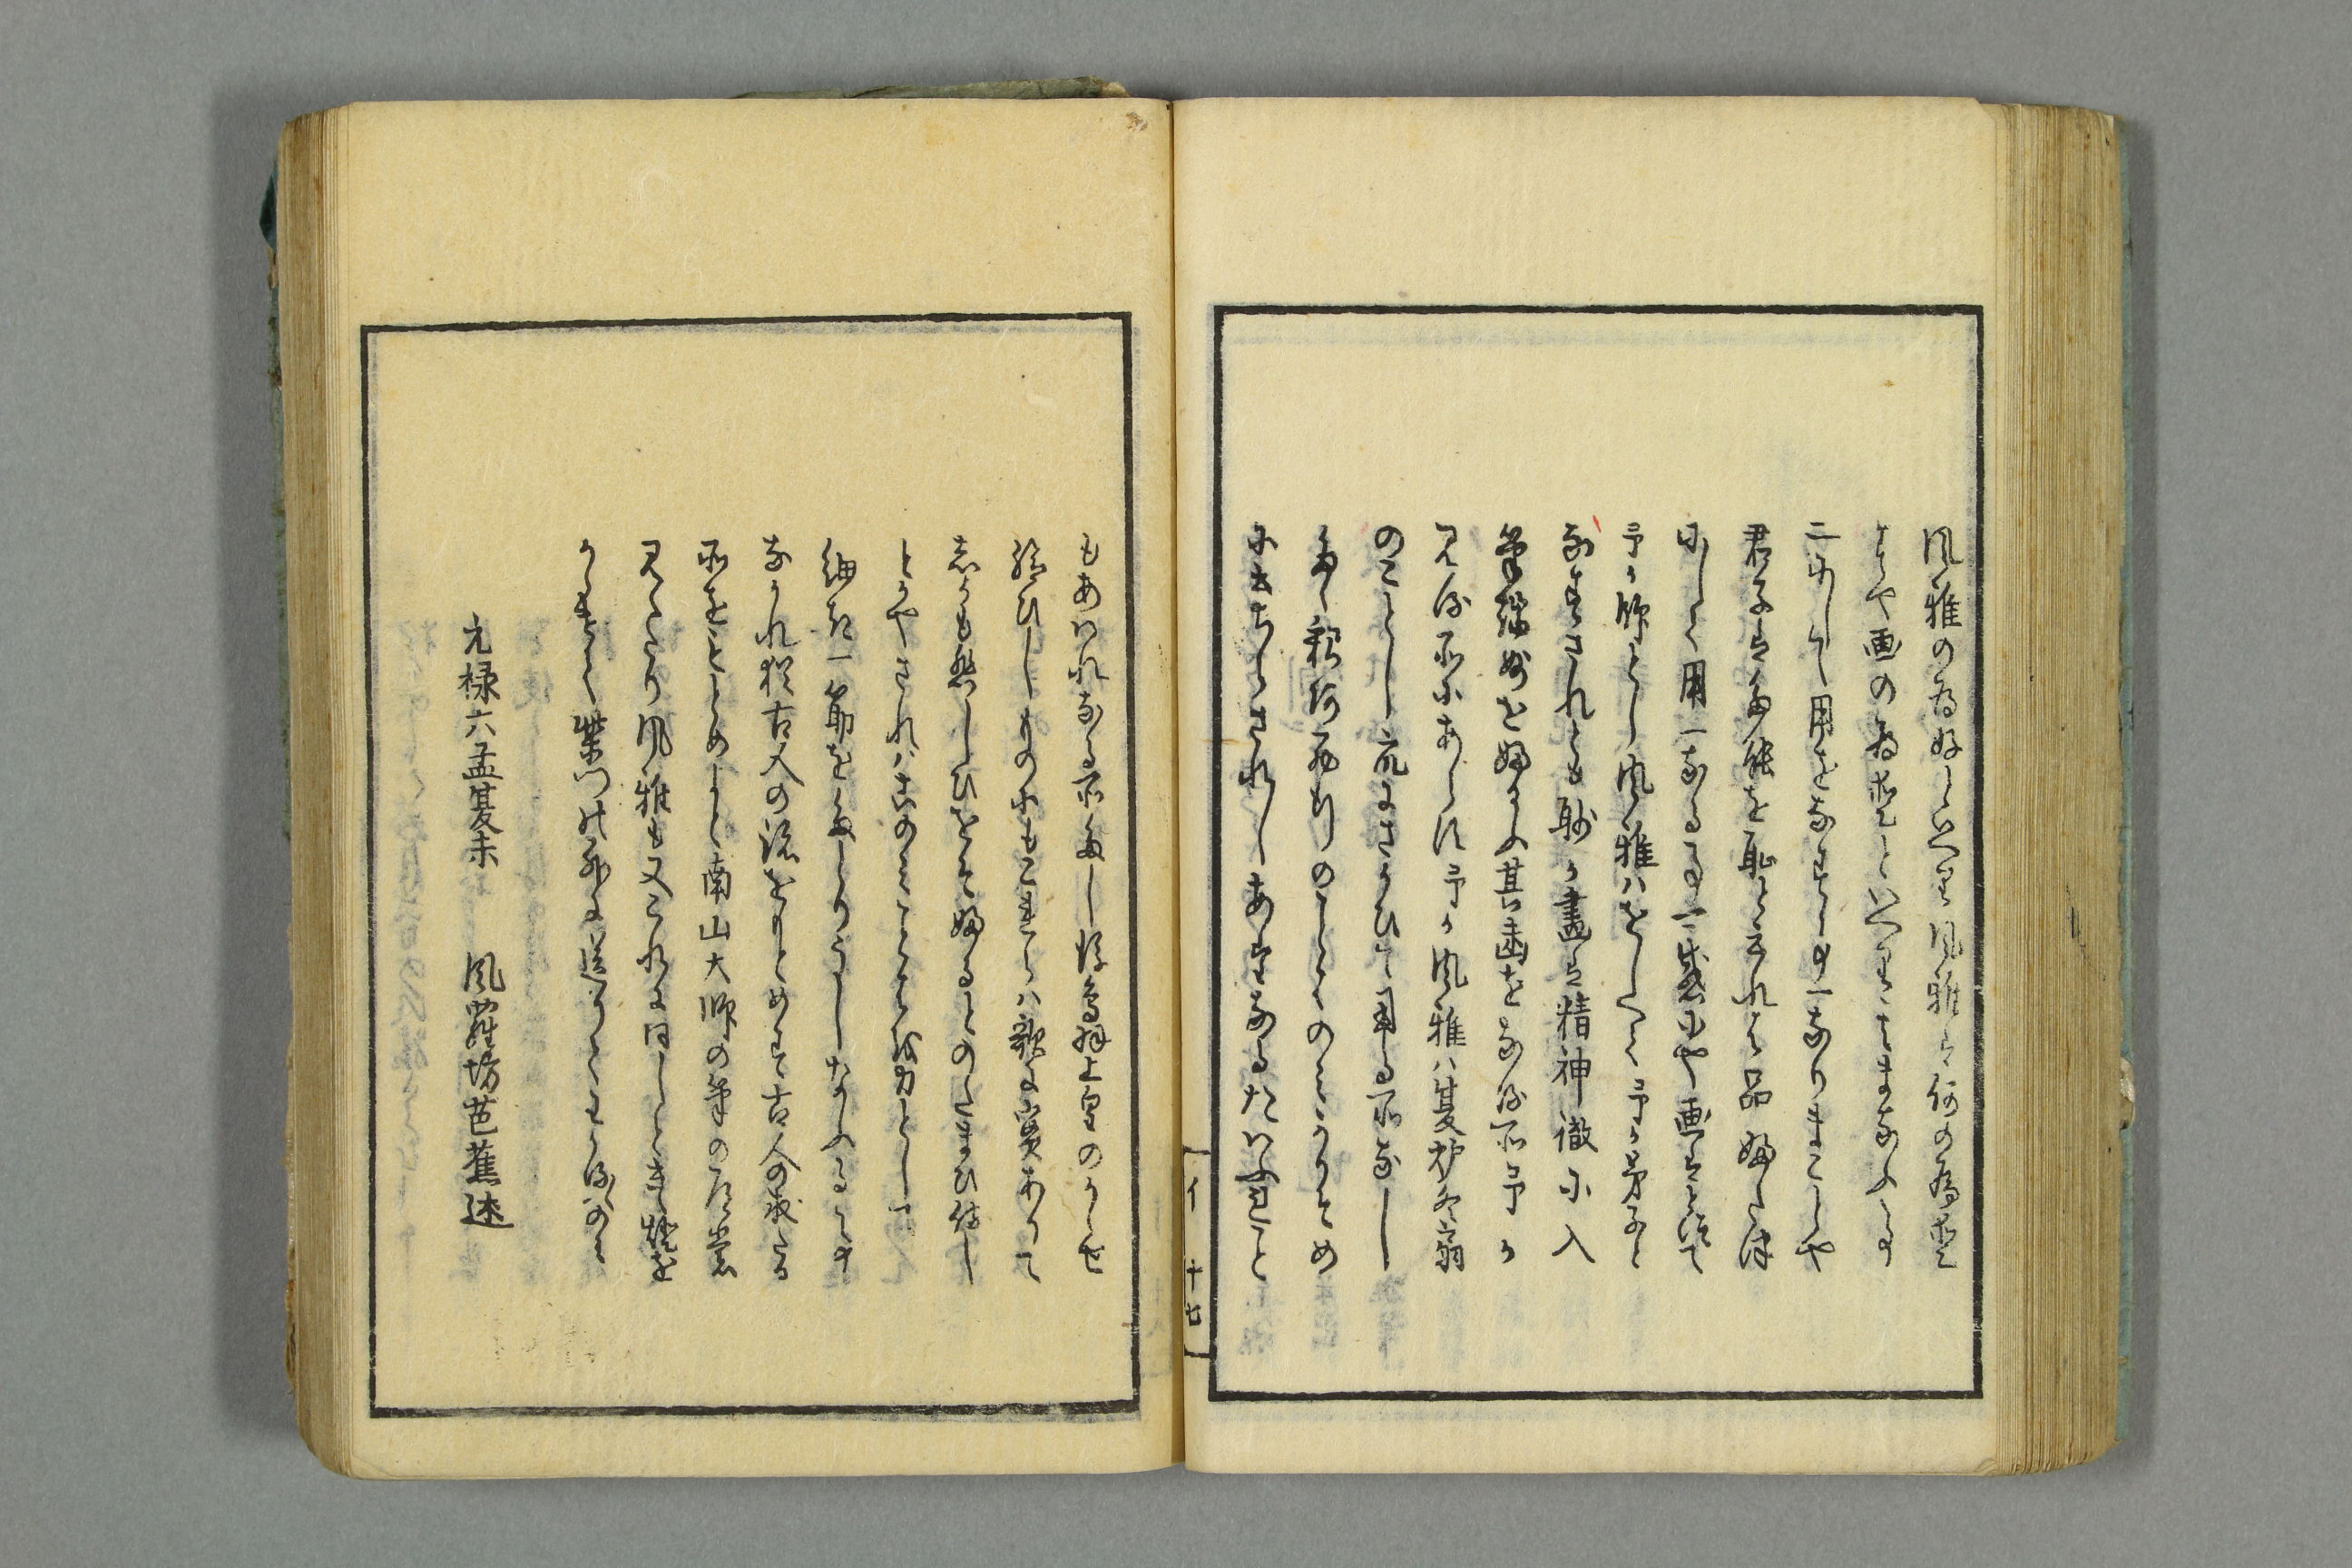 風雅の為好といへり風雅は何の為愛
すや画の為愛すといへりそのまなふ事
二にして用をなす事一なりまことや
君子は多能を恥と云れは品婦たつ
にして用一なる事可感にや画はとつて
予か師とし風雅ハをしへて予か弟子と
なすされとも師か畫は精神徹に入
筆端妙を婦るふ其幽遠なる所予か
見る所にあらす予か風雅ハ夏炉冬扇
のことし衆にさかひて用る所なし
たゝ釈阿西行のことはのみかりそめ
に云ちらされしあたなるたハふれこと
イ 十七
もあハれなる所多し後鳥羽上皇のかゝせ
給ひしものにもこれらハ歌に實ありて
志かも悲しひをそ婦るとのたまひ侍し
とかやされハこのみことはを力として
細き一筋をたとりうしなふる事
なかれ猶古人の跡をもとめす古人の求たる
所をもとめよと南山大師の筆の道に
見えたり風雅も又これに同しと云て燈を
かゝけて柴門の外に送りてわかるゝのみ
元禄六孟夏末 風羅坊芭蕉述